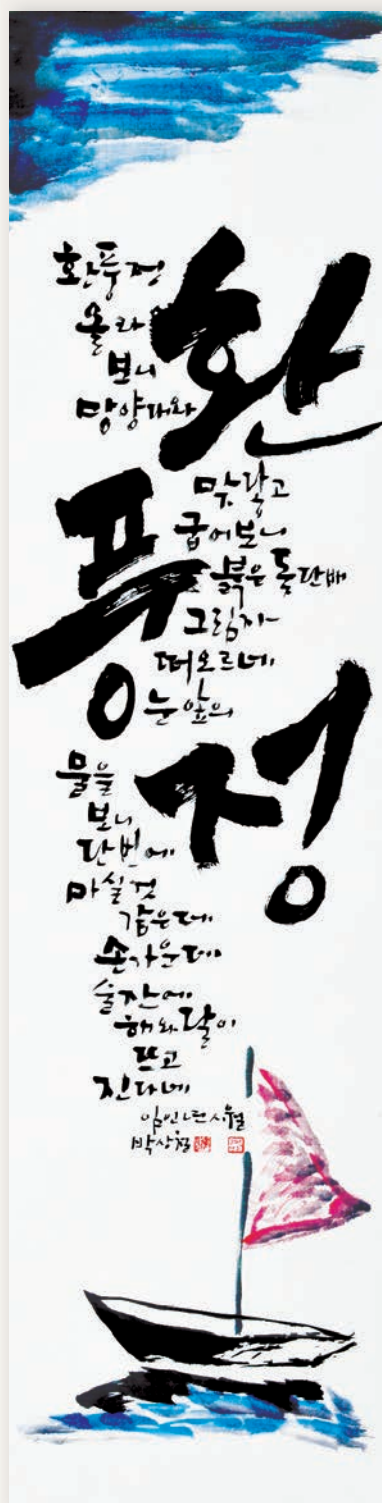 환풍정
환풍정
올라
보니
망양대와
맞닿고
굽어보니
붉은 돛단배
그림자
떠오르네
눈 앞의
물을
보니
단번에
마실 것
같은데
손 가운데
술잔에
해와 달이
뜨고
진다네
임인년 시월
박상철